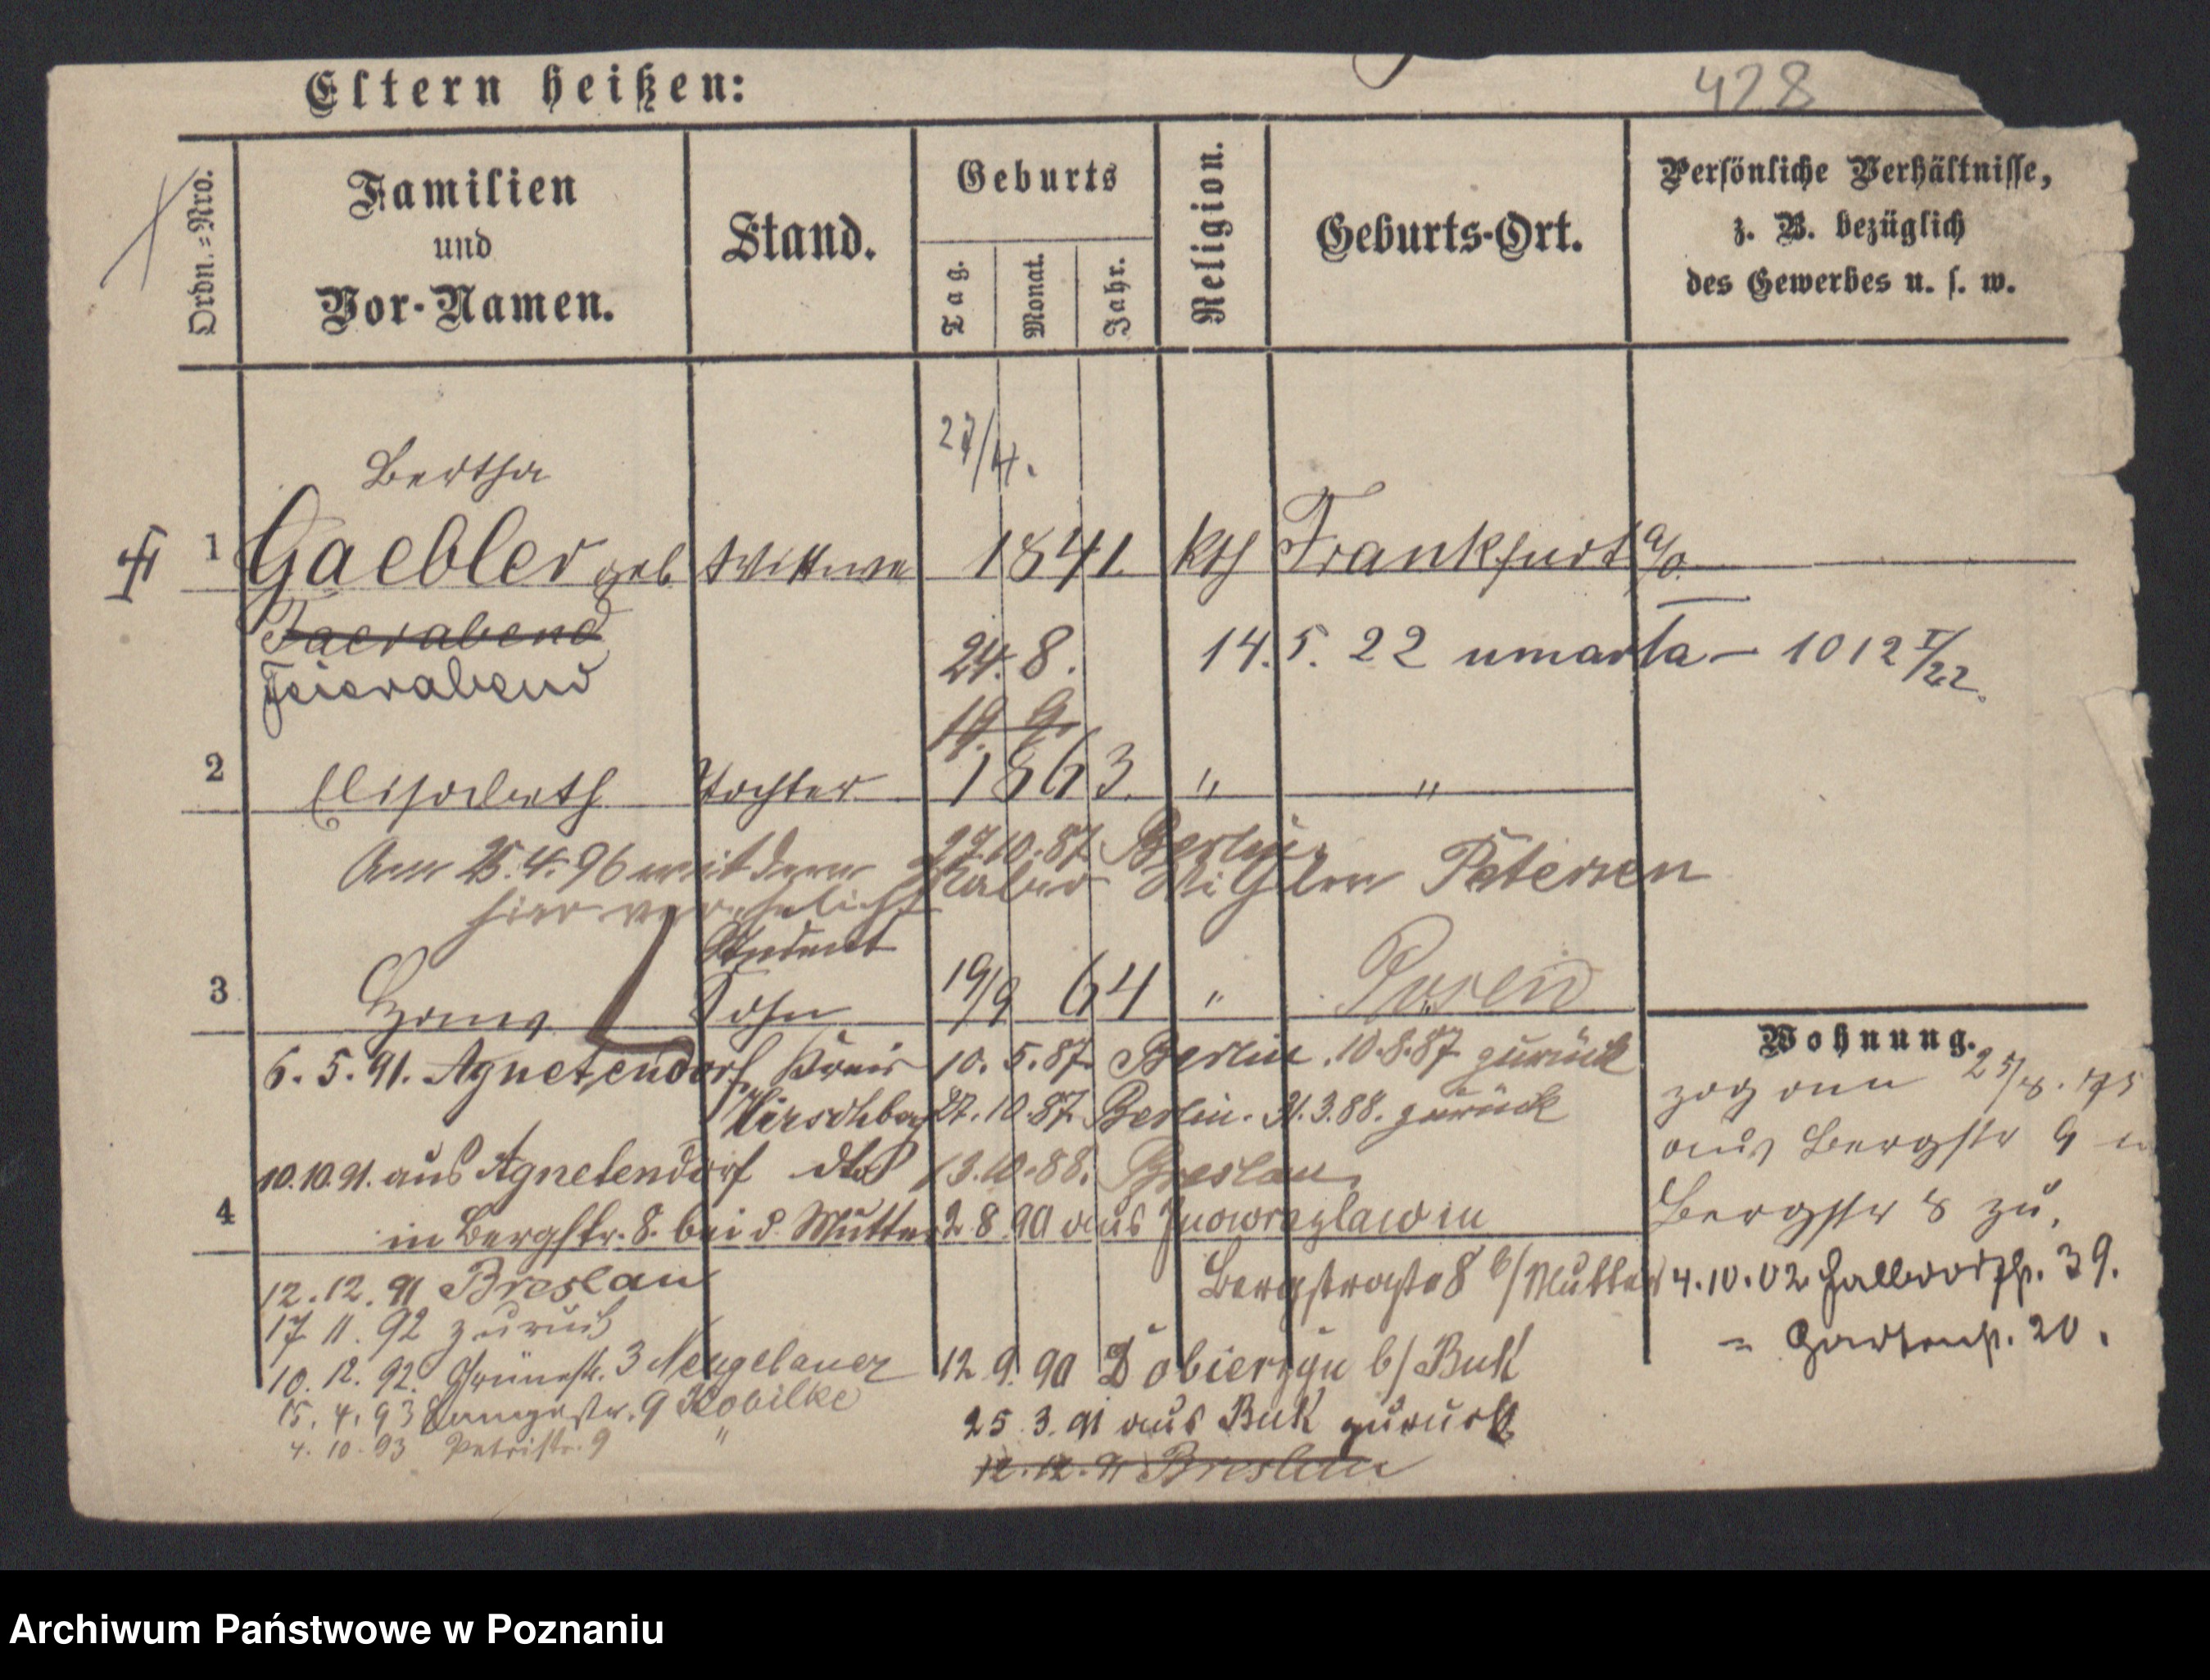 428
Eltern heißen:
Ordn.=Nro.
Familien
und
Vor-Namen.
Stand.
Geburts
Tag.
Monat.
Jahr.
Religion.
Geburts-Ort.
Persönliche Verhältnisse,
z. B. bezüglich
des Gewerbes u. s. w.
27/4.
Bertha
1 Gaebler geb Wittwe 1841. kth Frankfurt a/O.
Faerabend
Feierabend
24. 8. 14. 5. 22 umarła – 1012 I/22.
19. 9.
2 Elisabeth Tochter 1863. " "
27.10.87. Berlin.
Am 25.4.96 mit dem Petersen
hier verehelicht
Student
3 Hans Sohn 19/9 64 " Posen
Wohnung.
6. 5. 91. Agnetendorf Kreis 10. 5. 87. Berlin. 10.8.87 zurück
Hirschberg 27. 10. 87. Berlin. 31.3.88. zurück
zog am 25/8.
aus Bergstr 9
10.10.91. aus Agnetendorf 13.10.88. Breslau.
Bergstr 8 zu.
4 in Bergstr. 8. bei d. Mutter 2 8. 90 aus Inowrazlaw in
Bergstraße 8 b/Mutter
4.10.02 Halbdorfstr. 39.
12. 12. 91 Breslau
17 11. 92 zurück
" Gartenstr. 20.
10. 12. 92. Grünestr. 3 Neugebauer 12 9. 90 b/ Buk
15. 4. 93 Langestr. 9 Kobilke
25. 3. 91 aus Buk zurück
4. 10. 93 Petristr. 9 "
12. 12. 91 Breslau
Archiwum Państwowe w Poznaniu